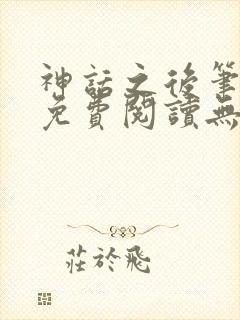 神話之後筆
免費閱讀無
莊於飛